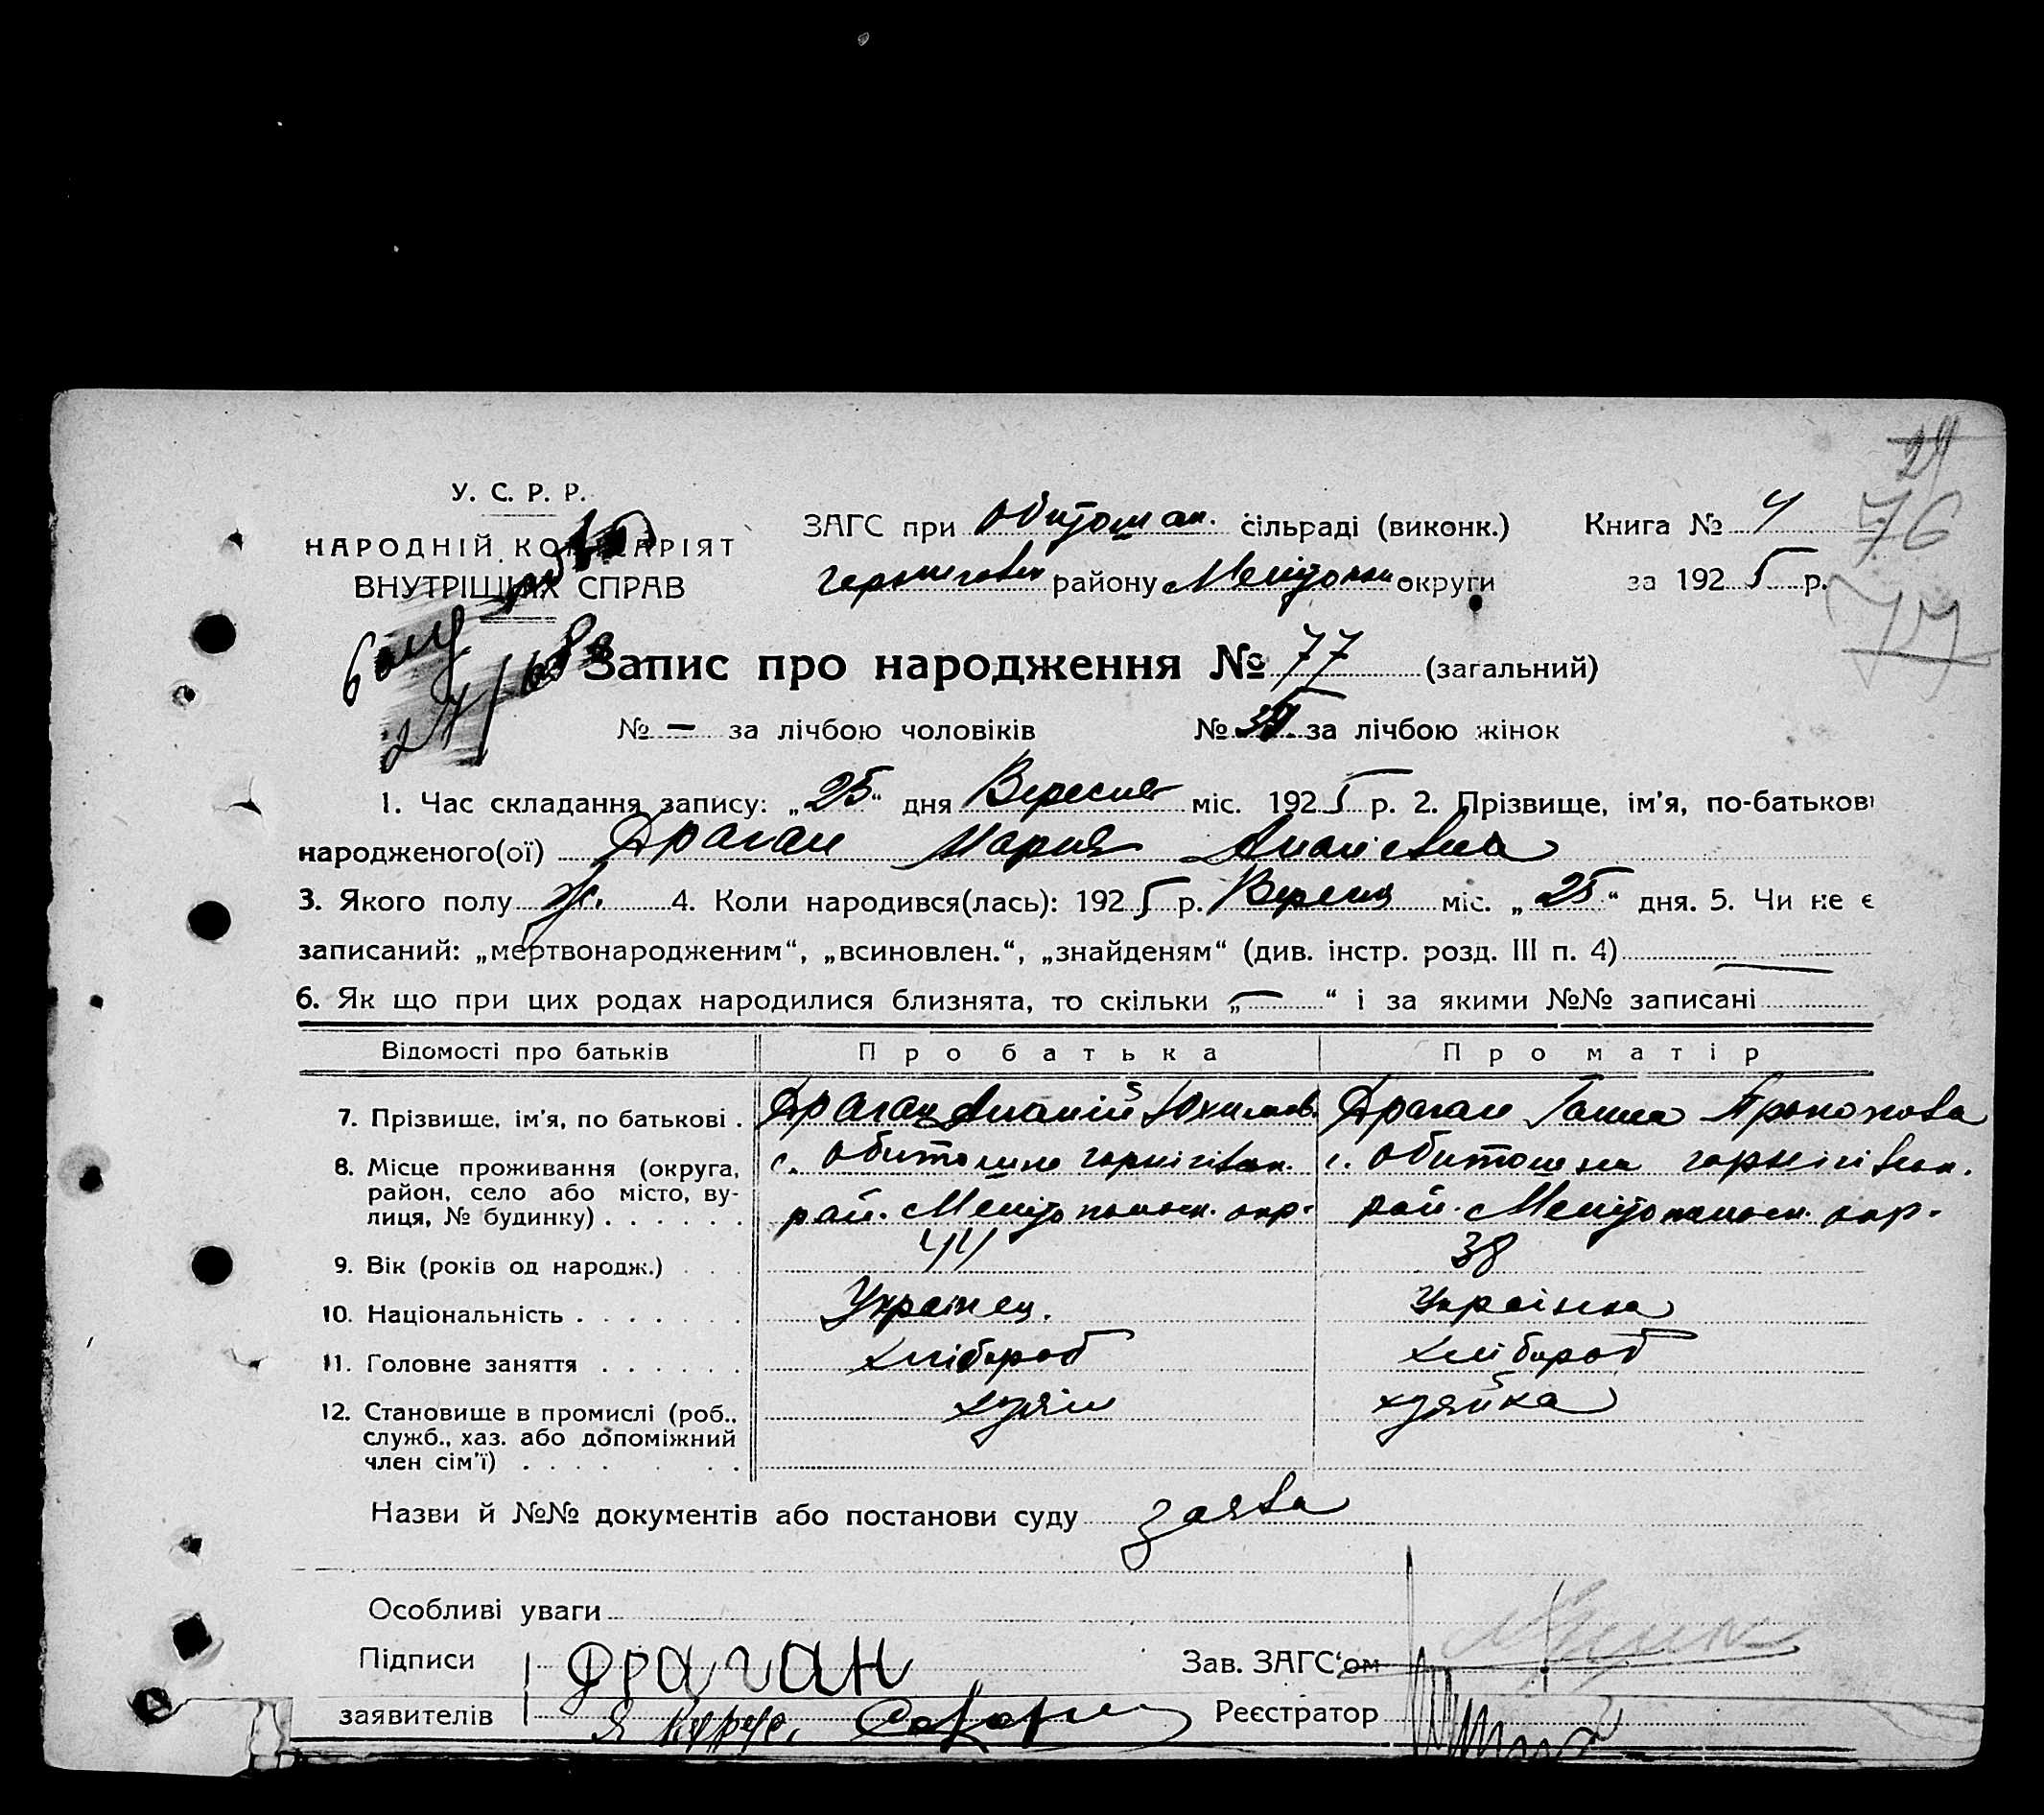 24
У. С. Р. Р.
ЗАГС при Обиточан. сільраді (виконк.) Книга № 4
76
НАРОДНІЙ КОМІСАРІЯТ
ВНУТРІШНІХ СПРАВ
району Мелітопол округи за 1925 р.
77
Запис про народження № 77 (загальний)
№ — за лічбою чоловіків № за лічбою жінок
1. Час складання запису: „25“ дня Вересня міс. 1925 р. 2. Прізвище, ім'я, по-батькові
народженого(ої) Драган Мария Ананієвна
3. Якого полу ж. 4. Коли народився(лась): 1925 р. Вересня міс. „25“ дня. 5. Чи не є
записаний: „мертвонародженим“, „всиновлен.“, „знайденям“ (див. інстр. розд. III п. 4) —
6. Як що при цих родах народилися близнята, то скільки „—“ і за якими №№ записані
Відомості про батьків Про батька Про матір
7. Прізвище, ім'я, по батькові . Драган Ананій Юхимов. Драган Ганна Прокопова
8. Місце проживання (округа, с. Обиточне с. Обиточна
район, село або місто, ву-
лиця, № будинку) . . . . . . рай. Мелітопольск. окр. рай. Мелітопольск. окр.
9. Вік (років од народж.) . . . 44 38
10. Національність . . . . . . . Українец. Українка
11. Головне заняття . . . . . . хлібороб хлібороб
12. Становище в промислі (роб., хазяїн хазяйка
служб., хаз. або допоміжний
член сім'ї) . . . . . . .
Назви й №№ документів або постанови суду заява
Особливі уваги
Підписи Драган Зав. ЗАГС'ом
заявителів Реєстратор